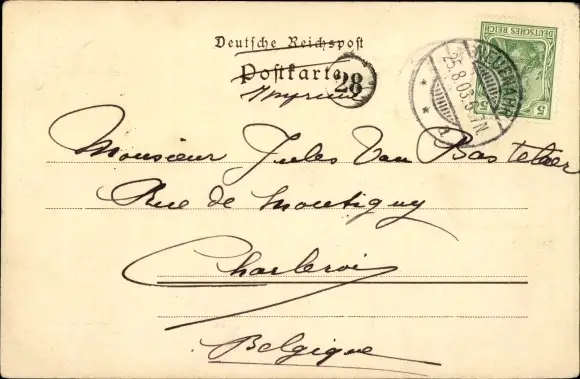 Deutsche Reichspost
Postkarte
Imprimé
28
NEUENAHR
25.8.03.6-7N.
* *
a
DEUTSCHES REICH
5 5
Monsieur Jules Van Bastelaer
Rue de Montigny
Charleroi
Belgique